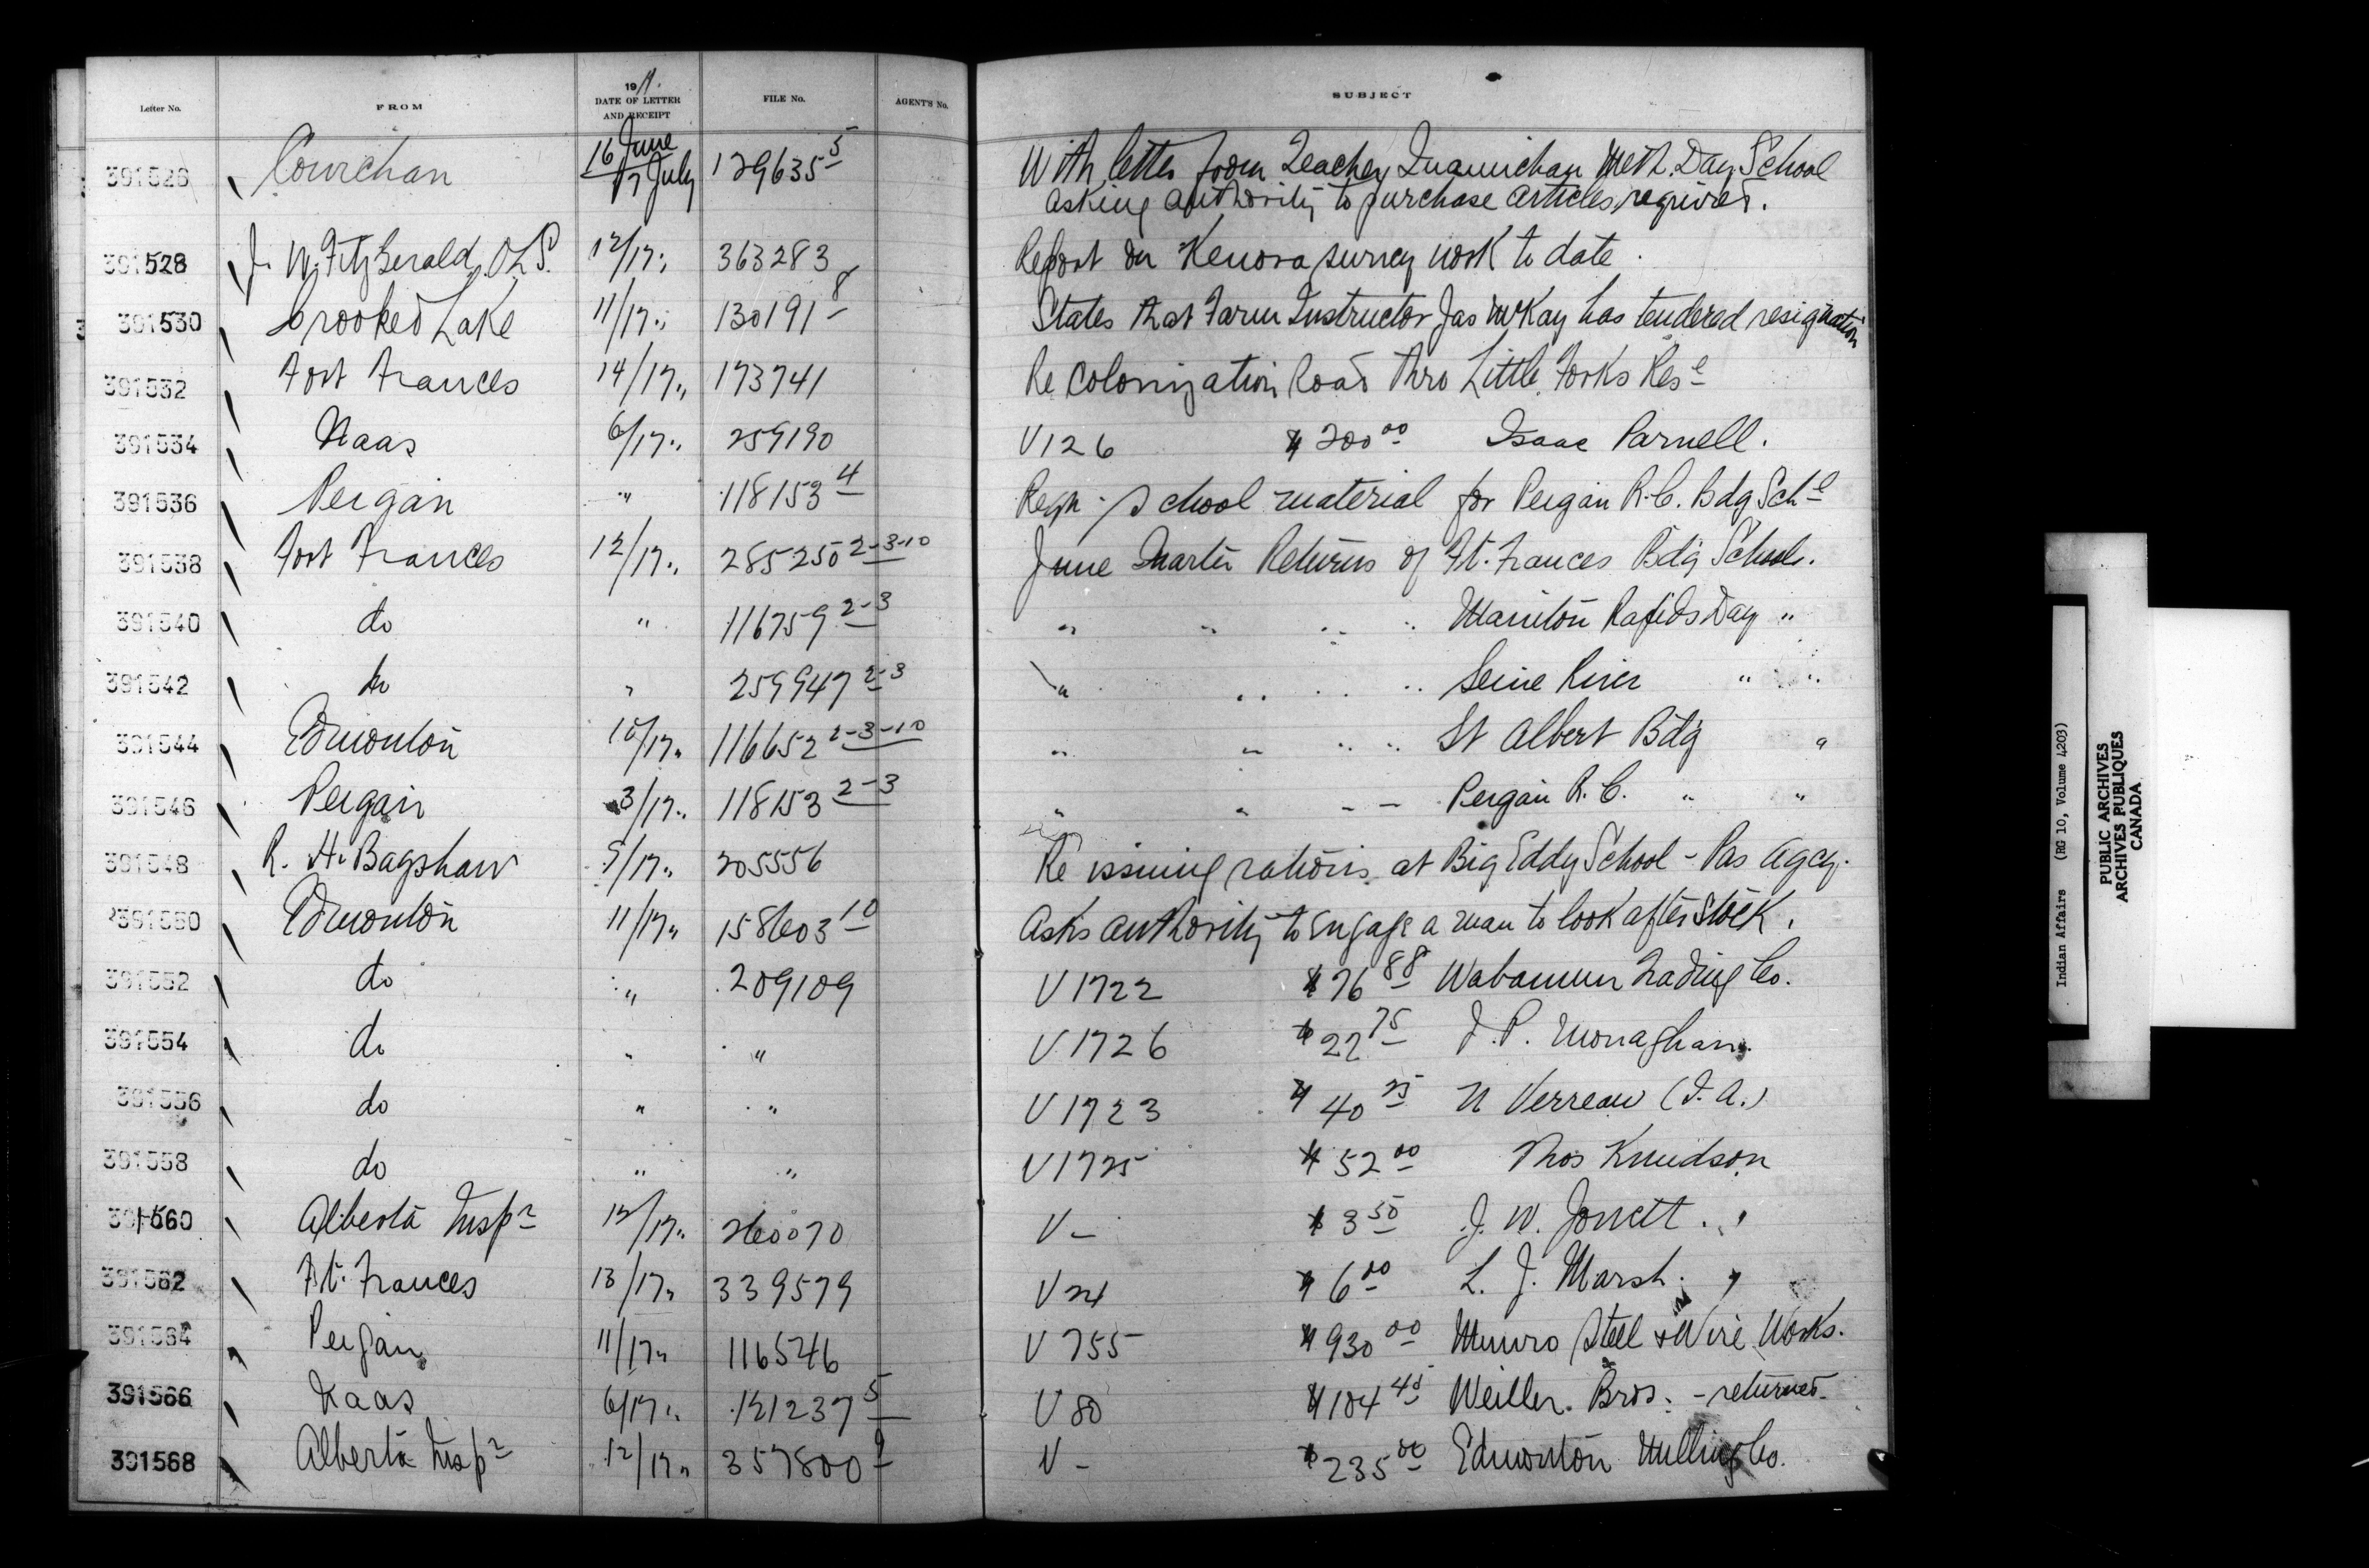 Letter No. FROM 1911. DATE OF LETTER AND RECEIPT FILE No. AGENT'S No. SUBJECT
391526 Cowichan 16 June / 17 July 129635 5 With letter from Teacher, Quamichan Meth. Day School
asking authority to purchase articles required.
391528 J. W. FitzGerald, OLS. 12/17 „ 363283 Report on Kenora survey work to date.
391530 Crooked Lake 11/17 „ 130191 8 States that Farm Instructor Jas McKay has tendered resignation
391532 Fort Frances 14/17 „ 173741 Re Colonization Road thro Little Forks Rese
391534 Naas 6/17 „ 259190 V126 $200 00 Isaac Parnell.
391536 Peigan „ 118153 4 Reqn. School material for Peigan R.C. Bdg Schl
391538 Fort Frances 12/17 „ 285250 2-3-10 June Quarter Returns of Ft. Frances Bdg School.
391540 do „ 116759 2-3 „ „ „ „ Manitou Rapids Day „
391542 do „ 259947 2-3 „ „ „ „ Seine River „ „
391544 Edmonton 10/17 „ 116652 2-3-10 „ „ „ „ St Albert Bdg „
391546 Peigan 3/17 „ 118153 2-3 „ „ – – Peigan R.C. „ „
391548 R. H. Bagshaw 5/17 „ 205556 Re issuing rations at Big Eddy School - Pas Agcy.
391550 Edmonton 11/17 „ 158603 10 Asks authority to engage a man to look after stock.
391552 do „ 209109 V1722 $76 88 Wabamun Trading Co.
391554 do „ „ V1726 $22 75 J. P. Monaghan.
391556 do „ „ V1723 $40 25 N Verreau (I.A.)
391558 do „ „ V1725 $52 00 Thos Knudson
391560 Alberta Inspr 12/17 „ 260070 V – $3 50 J. W. Jowett.
391562 Ft. Frances 13/17 „ 339579 V24 $6 00 L. J. Marsh.
391564 Peigan 11/17 „ 116546 V755 $930 00 Munro Steel & Wire Works.
391566 Naas 6/17 „ 121237 5 V80 $184 40 Weiller Bros. - returned
391568 Alberta Inspr 12/17 „ 357800 9 V – $235 00 Edmonton Milling Co.
Indian Affairs (RG 10, Volume 4203)
PUBLIC ARCHIVES
ARCHIVES PUBLIQUES
CANADA